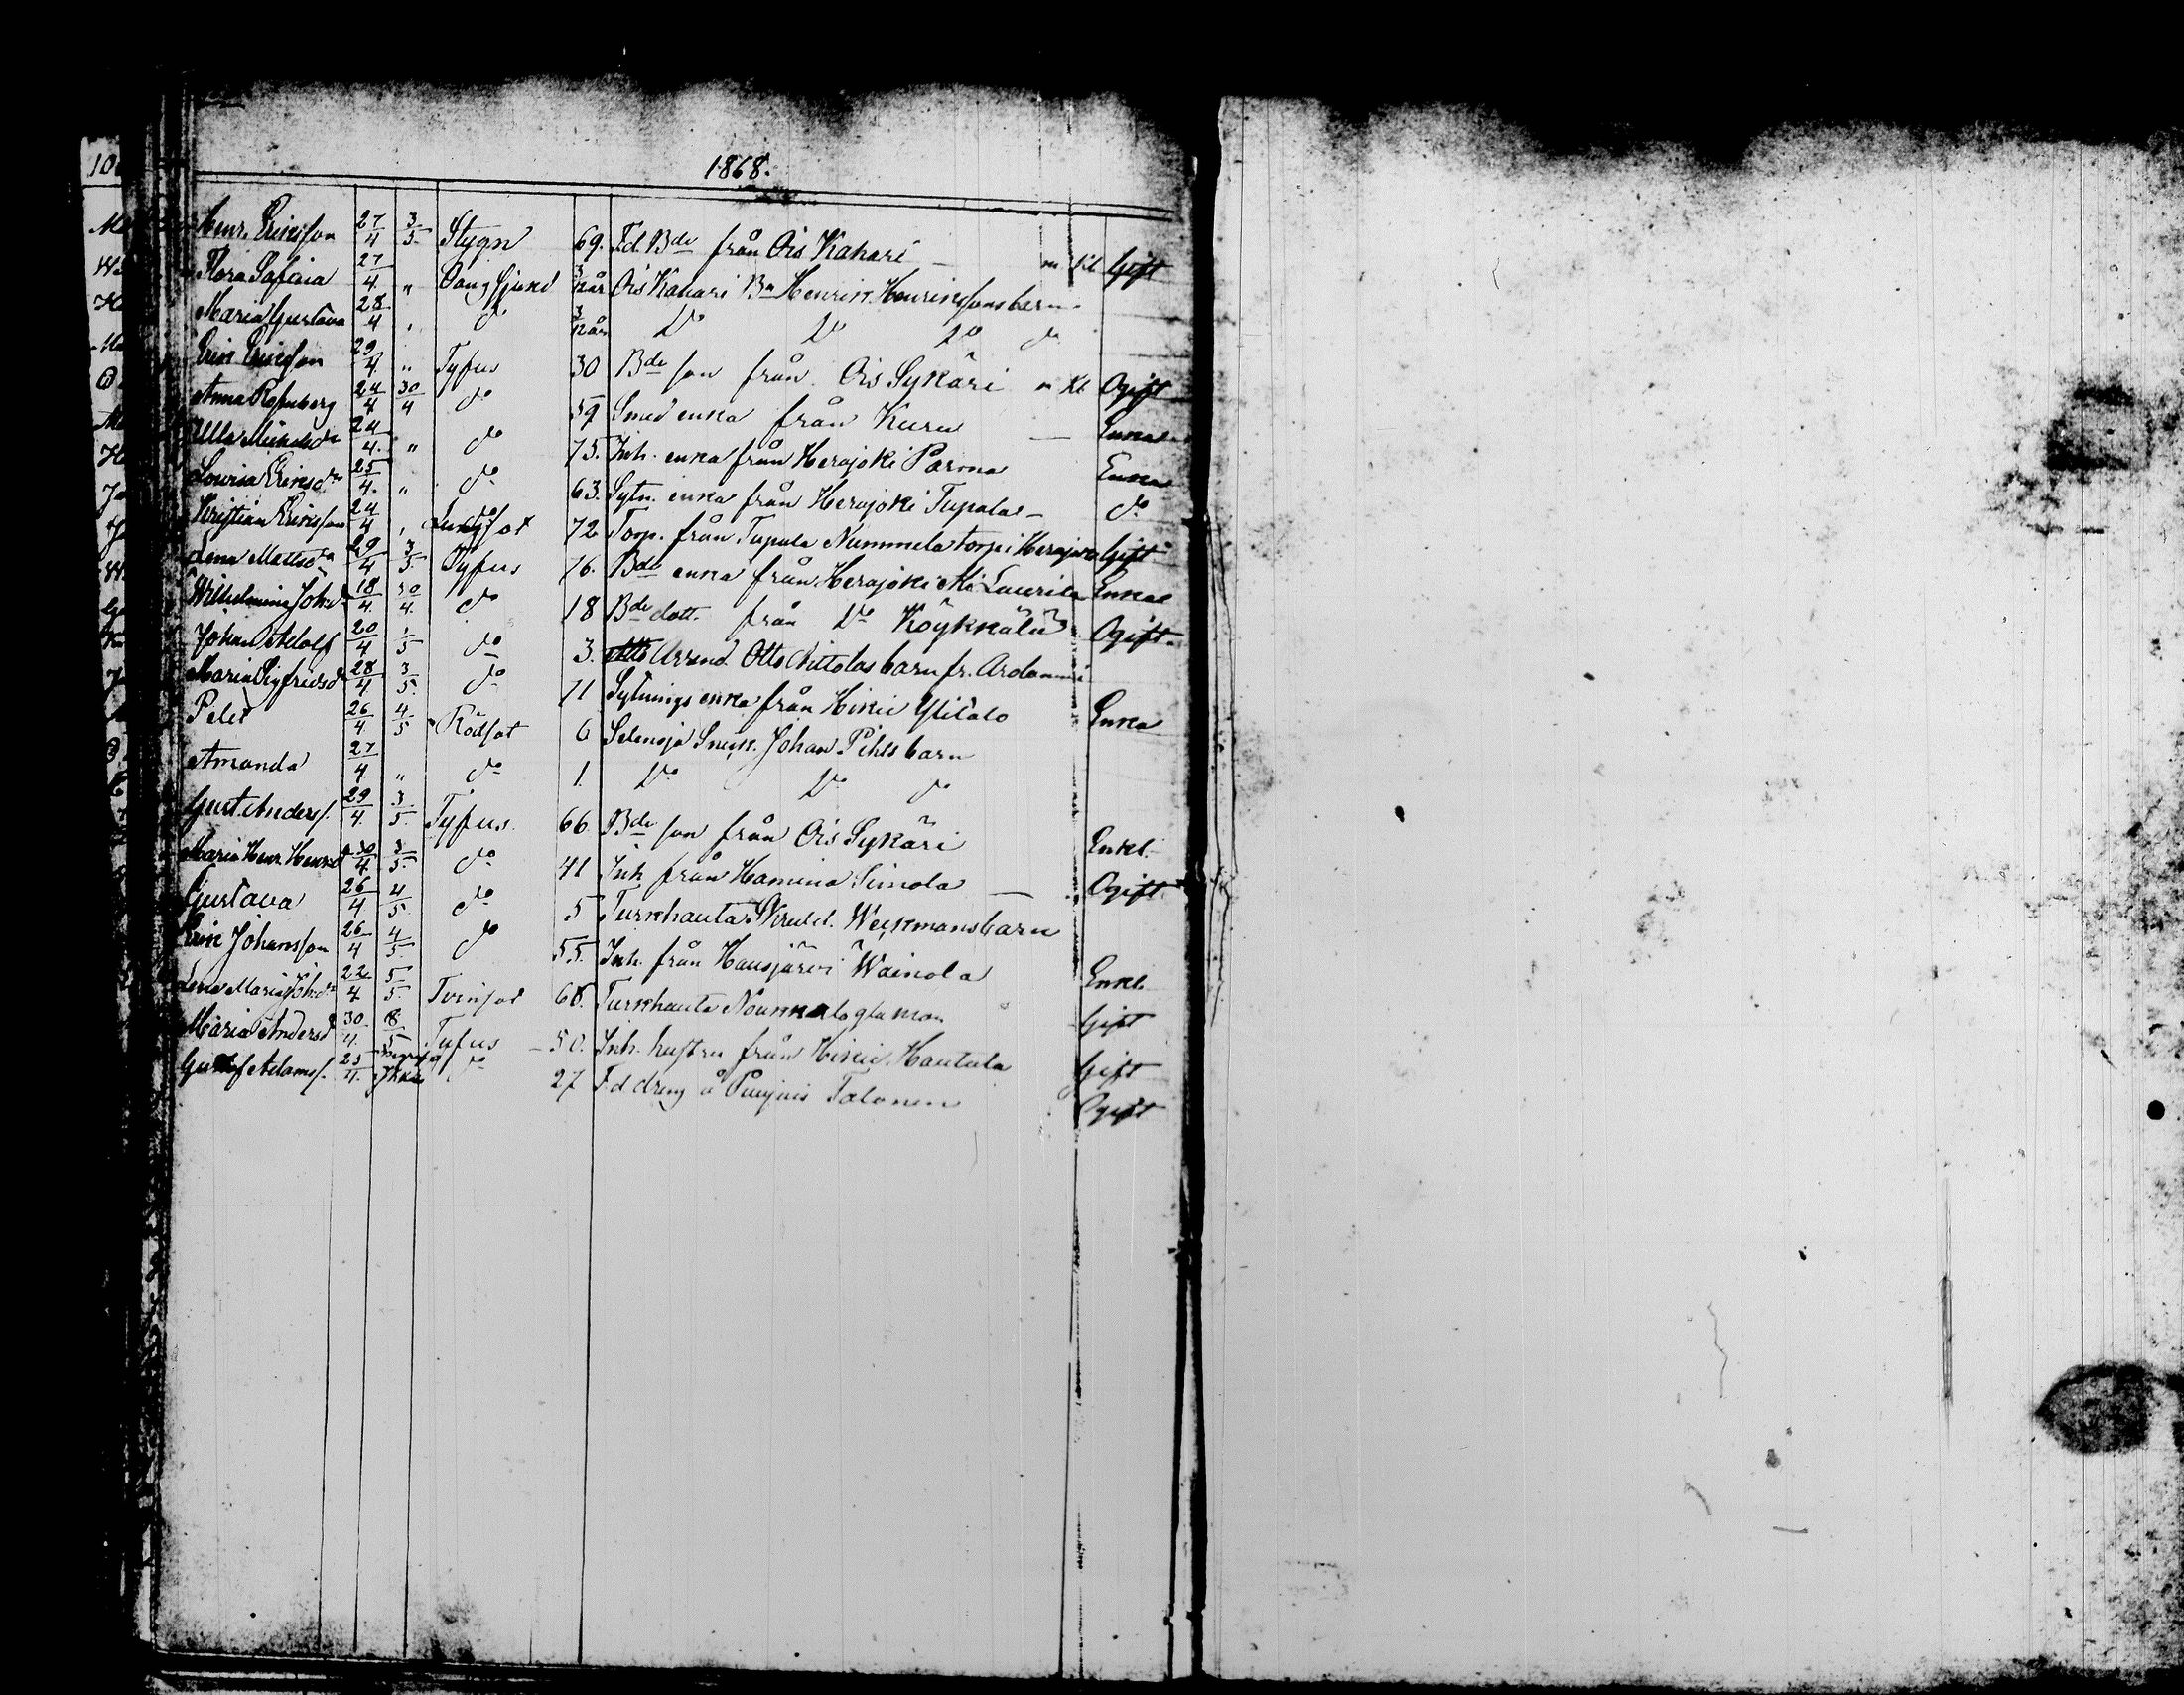 1868.
Henr. Eriksson 27/4 3/5 Stygn 69. F.d. Bde från Ois Kahari — m kl Gift
Flora Safiria 27/4 „ Oang sjund 3/12 år Ois Kahari Bn Henrik Henrikssons barn
Maria Gustava 28/4 „ do 3/12 år Do Do Do do
Erik Eriksson 29/4 „ Tyfus 30 Bde son från Ois Sykäri m kl Ogift
Anna Rosenberg 24/4 30/4 do 59 Smed enka från Kuru — Enka
Ulla Michelsdr 24/4 „ do 75. Inh. enka från Herajoki Parma Enka
Lovisa Eriksdr 25/4 „ do 63. Sytn. enka från Herajoki Tupala — do
Kristian Eriksson 24/4 „ Lungsot 72 Torp. från Tupala Nummela torp i Herajoki Gift
Lena Mattsdr 29/4 3/5 Tyfus 76. Bde enka från Herajoki Laurila Enka
Wilhelmina Johdr 18/4 30/4 do 18 Bde dott. från Do Köykkälä Ogift.
Johan Adolf 20/4 1/5 do 3. Arrend. Otto barn fr.
Maria Sigfridsdr 28/4 3/5 do 71 Sytnings enka från Hikiä Ylitalo Enka
Peter 26/4 4/5 Rödsot 6 Selänoja Snick. Johan Pihls barn
Amanda 27/4 „ do 1. Do Do do
Gust. Anders. 29/4 3/5 Tyfus 66 Bde son från Ois Sykäri Enkl.
Maria Henr. Henrsdr 30/4 3/5 do 41 Inh från Hamina Simola — Ogift
Gustava 26/4 4/5 do 5 Turkhauta Weckmans barn
Erik Johansson 26/4 4/5 do 55. Inh. från Hausjärvi Wainola Enkl.
Lena Maria Johdr 22/4 5/5 Tvinsot 68. Turkhauta Gift
Maria Andersdr 30/4 8/5 Tyfus — 50. Inh. hustru från Hikiä Hautala Gift
Gustaf Adams. 25/4 do 27 F.d dreng å Puujois Talonen Ogift